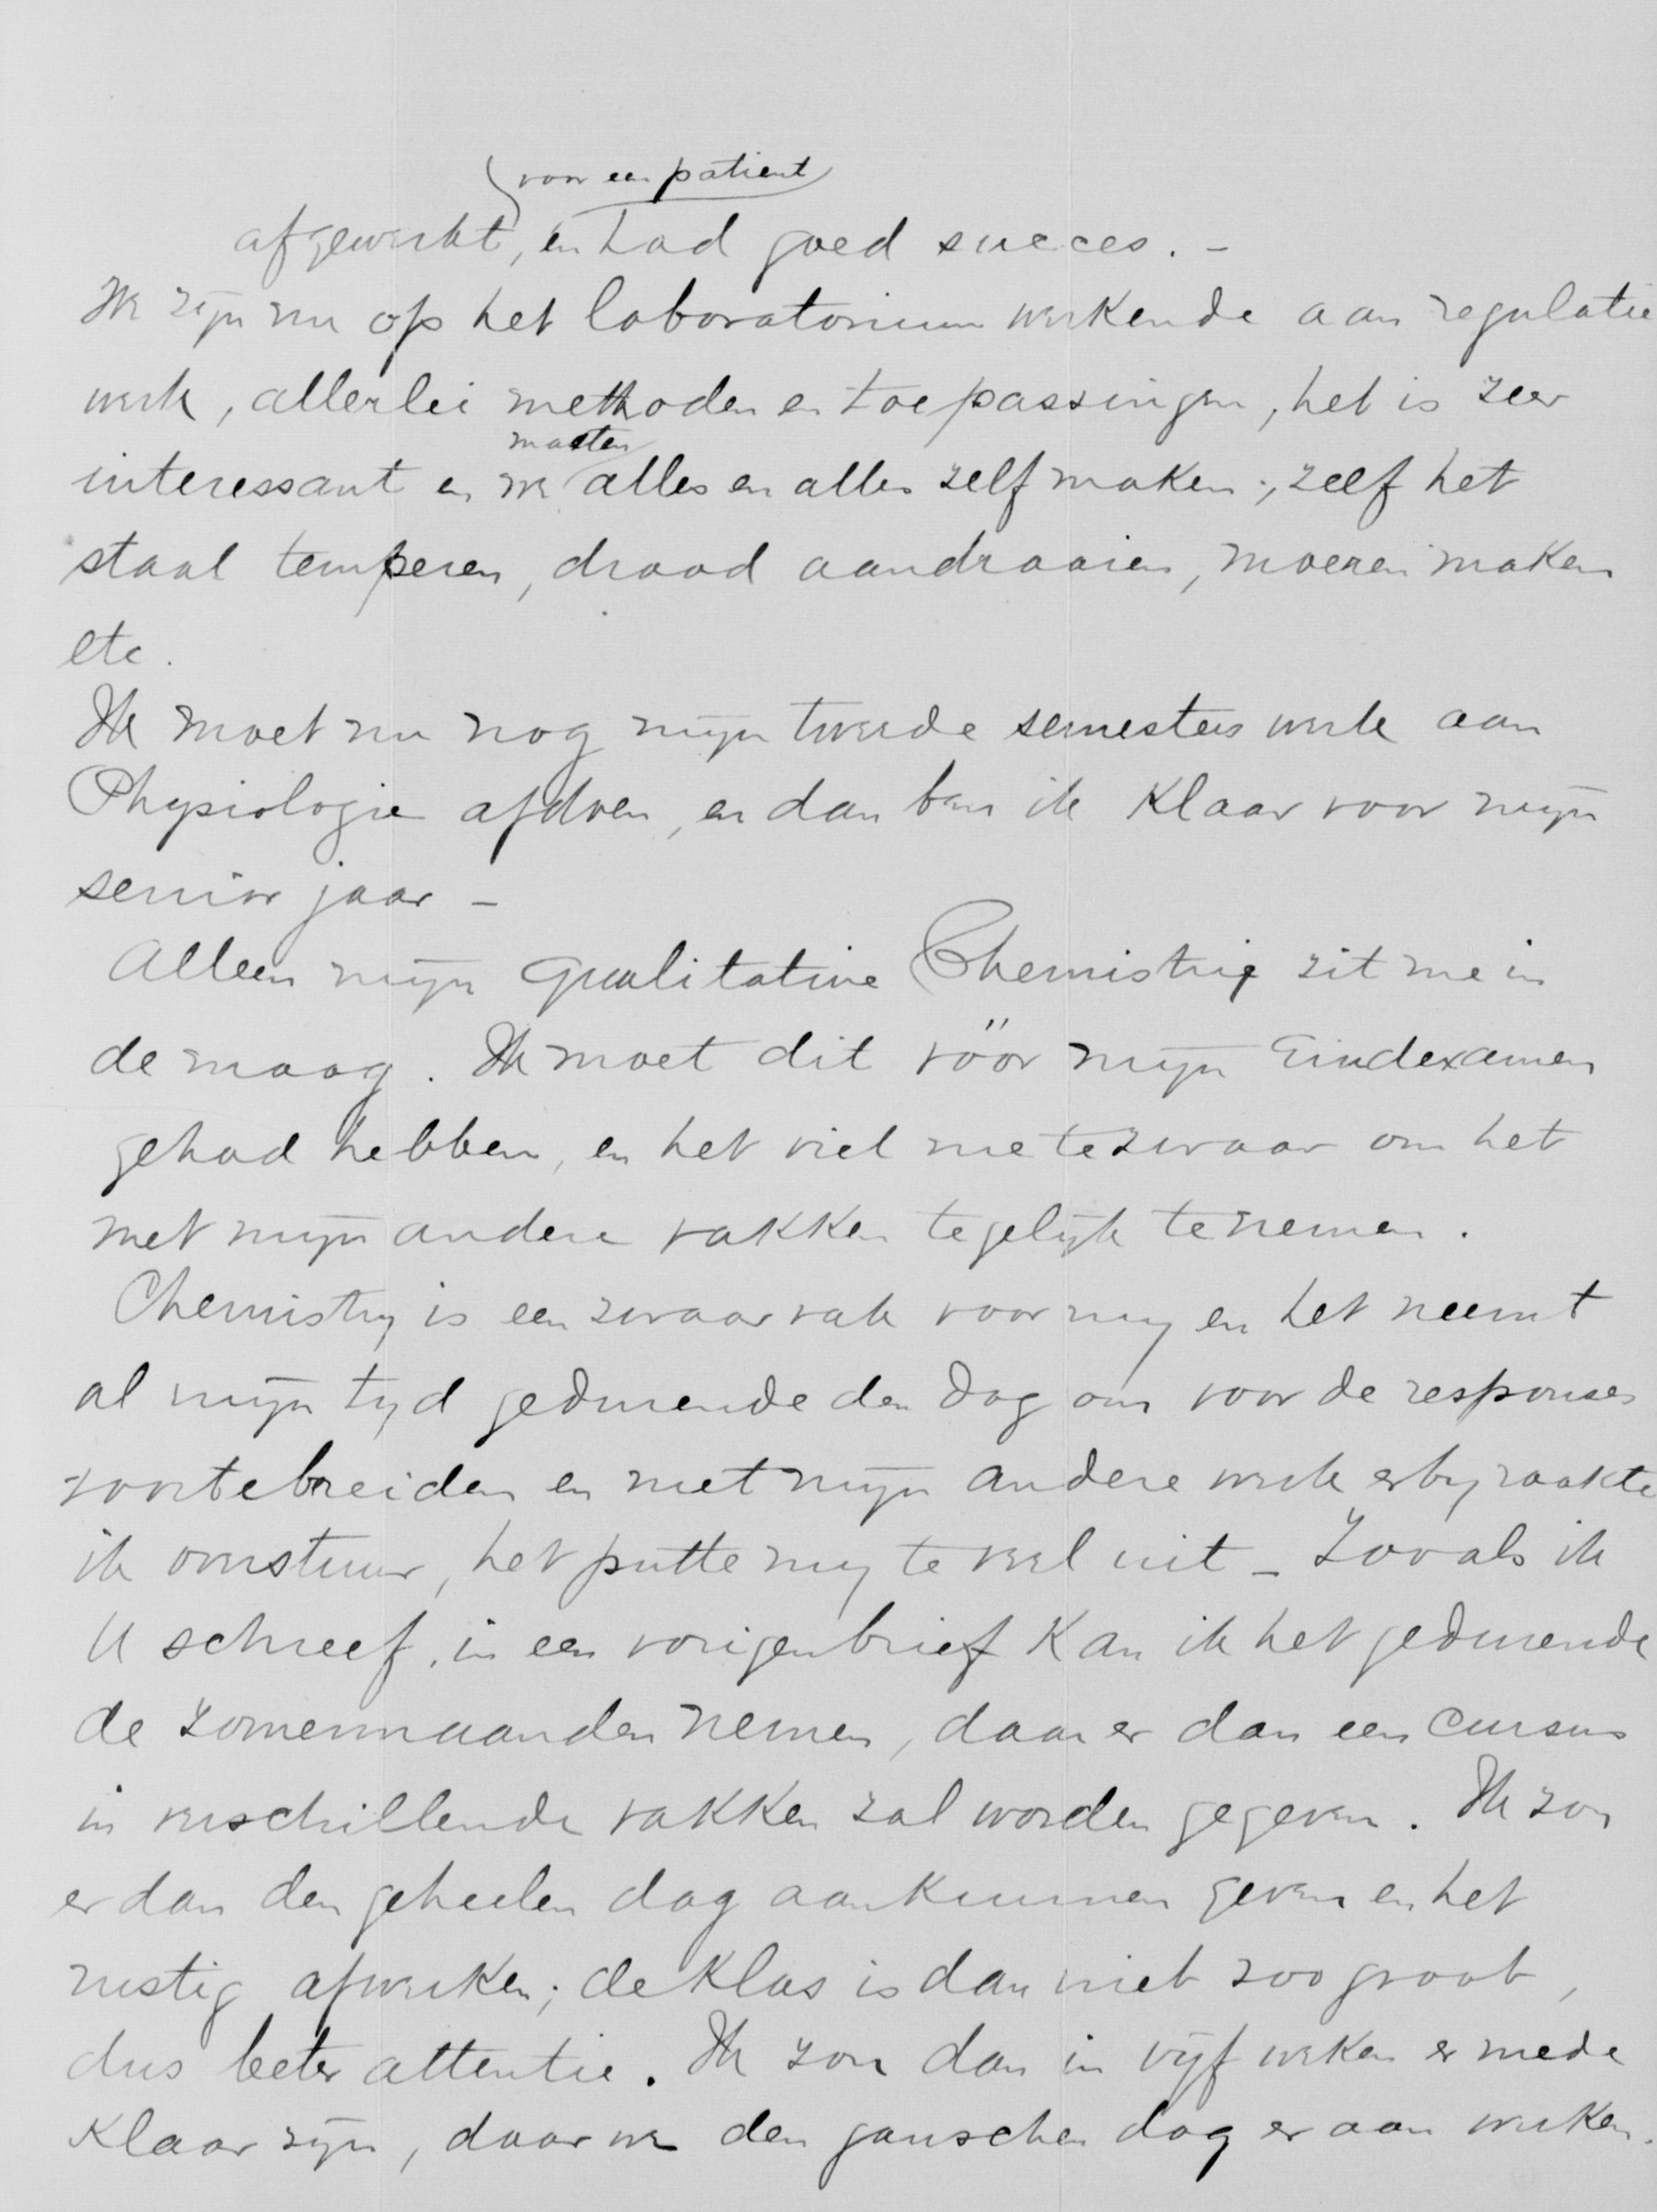 voor een patient
afgewerkt, en had goed succes. -
We zijn nu op het laboratorium werkende aan regulatie
werk, allerlei methoden en toepassingen, het is zeer
moeten
interessant en we alles en alles zelf maken; zelf het
staal temperen, draad aandraaien, moeren maken
etc.
Ik moet nu nog mijn tweede semesters werk aan
Physiologie afdoen, en dan ben ik klaar voor mijn
senior jaar -
Alleen mijn qualitative Chemistrie zit me in
de maag. Ik moet dit vóór mijn Eindexamen
gehad hebben, en het viel me te zwaar om het
met mijn andere vakken tegelijk te nemen.
Chemistry is een zwaar vak voor mij en het neemt
al mijn tijd gedurende den dag om voor de responses
voortebreiden en met mijn andere werk erbij raakte
ik overstuur, het putte mij te veel uit - Zooals ik
U schreef, in een vorigen brief kan ik het gedurende
de zomermaanden nemen, daar er dan een cursus
in verschillende vakken zal worden gegeven. Ik zou
er dan den geheelen dag aan kunnen geven en het
rustig afwerken; de klas is dan niet zoo groot,
dus beter attentie. Ik zou dan in vijf weken er mede
klaar zijn, daar we den ganschen dag er aan werken.